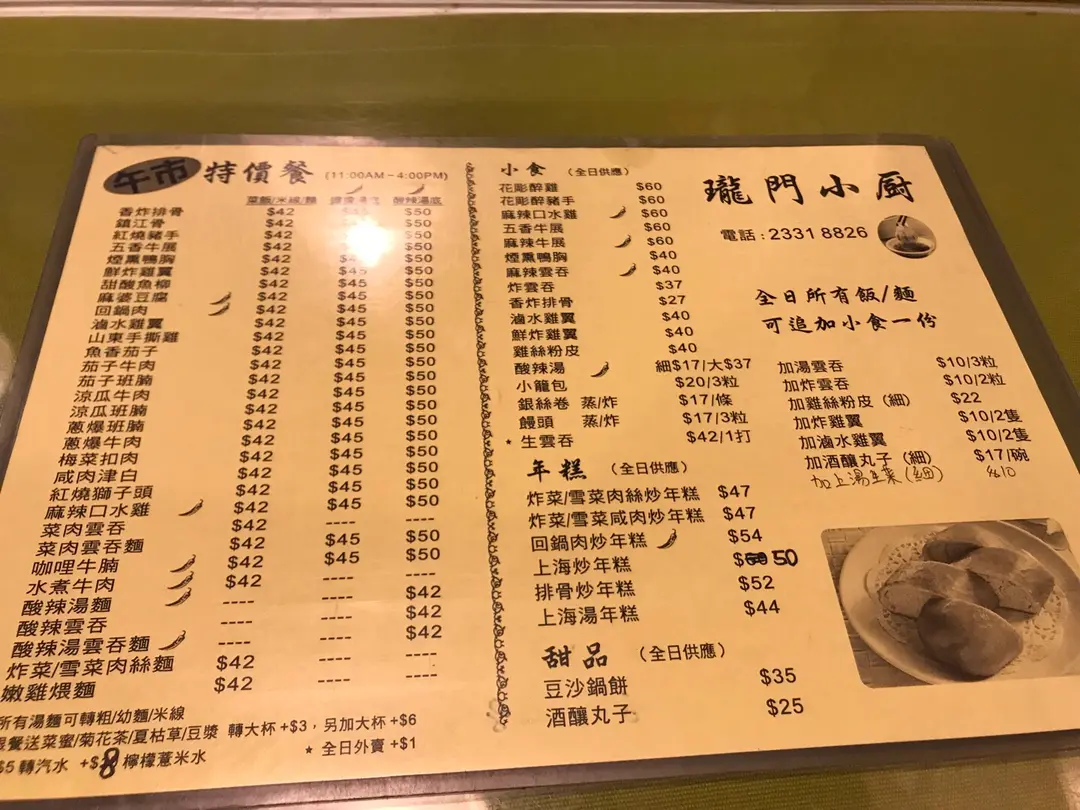 午市 特價餐 (11:00AM－4:00PM)
菜飯/米線/麵 酸辣湯底
香炸排骨 $42 $50
鎮江骨 $42 $50
紅燒豬手 $42 $50
五香牛展 $42 $50
煙熏鴨胸 $42 $50
鮮炸雞翼 $42 $50
甜酸魚柳 $42 $45 $50
麻婆豆腐 $42 $45 $50
回鍋肉 $42 $45 $50
滷水雞翼 $42 $45 $50
山東手撕雞 $42 $45 $50
魚香茄子 $42 $45 $50
茄子牛肉 $42 $45 $50
茄子班腩 $42 $45 $50
涼瓜牛肉 $42 $45 $50
涼瓜班腩 $42 $45 $50
蔥爆班腩 $42 $45 $50
蔥爆牛肉 $42 $45 $50
梅菜扣肉 $42 $45 $50
咸肉津白 $42 $45 $50
紅燒獅子頭 $42 $45 $50
麻辣口水雞 $42 $45 $50
菜肉雲吞 $42 ---- ----
菜肉雲吞麵 $42 $45 $50
咖喱牛腩 $42 $45 $50
水煮牛肉 $42 ---- ----
酸辣湯麵 ---- ---- $42
酸辣雲吞 ---- ---- $42
酸辣湯雲吞麵 ---- ---- $42
炸菜/雪菜肉絲麵 $42 ---- ----
嫩雞煨麵 $42 ---- ----
所有湯麵可轉粗/幼麵/米線
餐送菜蜜/菊花茶/夏枯草/豆漿 轉大杯+$3，另加大杯+$6
$5轉汽水 +$8檸檬薏米水 * 全日外賣+$1
小食 （全日供應）
花彫醉雞 $60
花彫醉豬手 $60
麻辣口水雞 $60
五香牛展 $60
麻辣牛展 $60
煙熏鴨胸 $40
麻辣雲吞 $40
炸雲吞 $37
香炸排骨 $27
滷水雞翼 $40
鮮炸雞翼 $40
雞絲粉皮 $40
酸辣湯 細$17/大$37
小籠包 $20/3粒
銀絲卷 蒸/炸 $17/條
饅頭 蒸/炸 $17/3粒
* 生雲吞 $42/1打
年糕 （全日供應）
炸菜/雪菜肉絲炒年糕 $47
炸菜/雪菜咸肉炒年糕 $47
回鍋肉炒年糕 $54
上海炒年糕 $50
排骨炒年糕 $52
上海湯年糕 $44
甜品 （全日供應）
豆沙鍋餅 $35
酒釀丸子 $25
瓏門小厨
電話：2331 8826
全日所有飯/麵
可追加小食一份
加湯雲吞 $10/3粒
加炸雲吞 $10/2粒
加雞絲粉皮（細） $22
加炸雞翼 $10/2隻
加滷水雞翼 $10/2隻
加酒釀丸子（細） $17/碗
加上湯生菜(細) $10